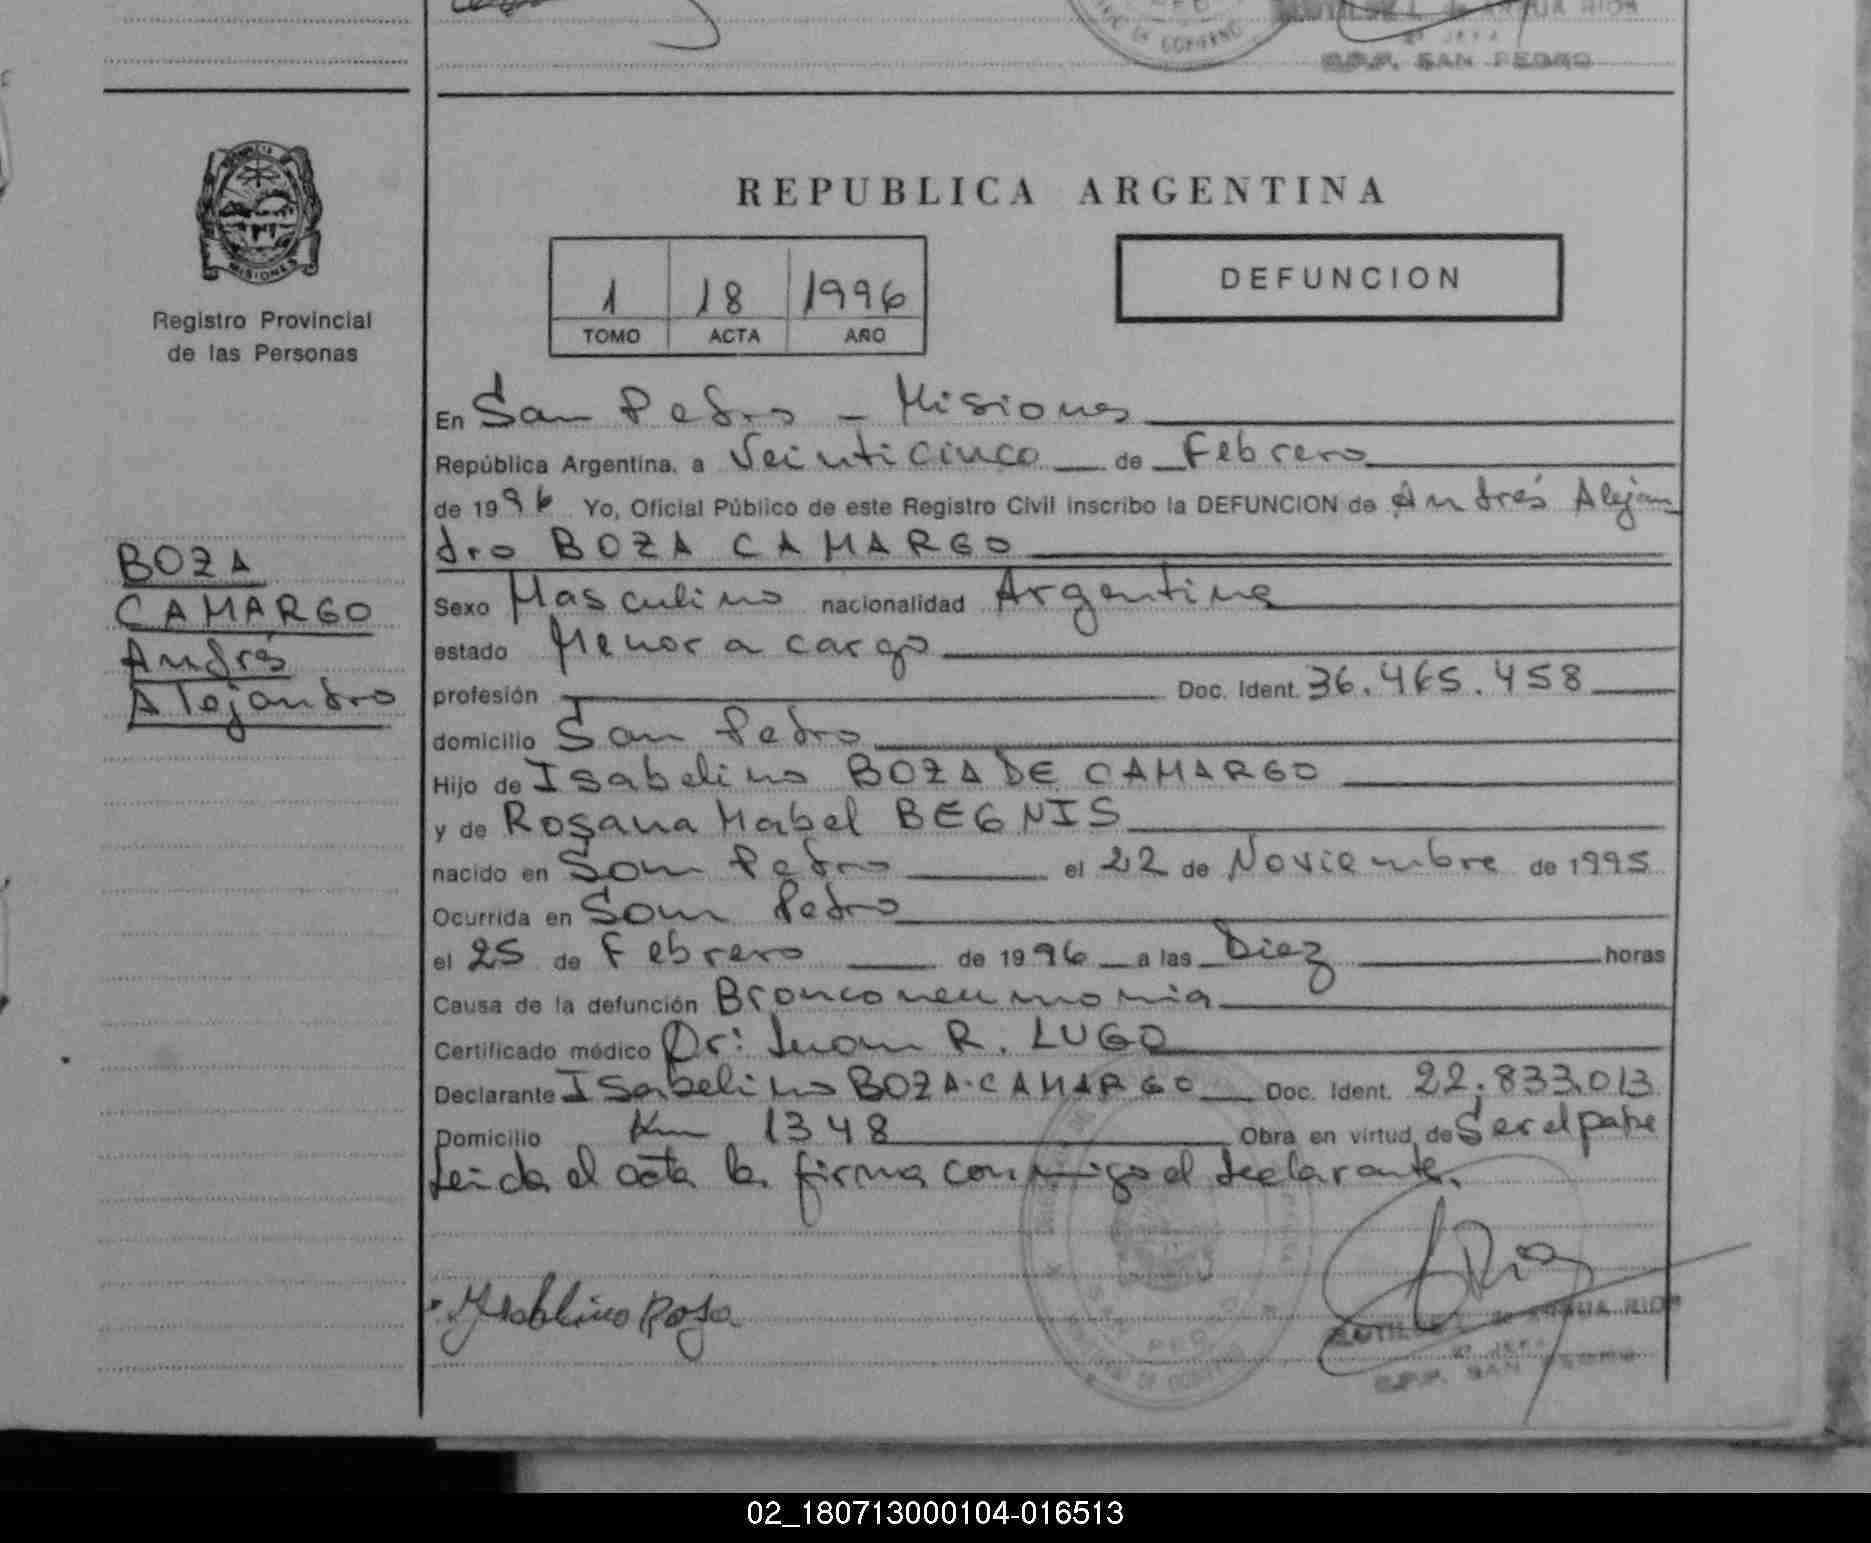 DE GOBIERNO
de AGUA RIOS
2º JEFA
R.P.P. SAN PEDRO
PROVINCIA DE
MISIONES
Registro Provincial
de las Personas
BOZA
CAMARGO
Andrés
Alejandro
REPUBLICA ARGENTINA
1 18 1996
TOMO ACTA AÑO
DEFUNCION
En San Pedro - Misiones
República Argentina, a Veinticinco de Febrero
de 1996 Yo, Oficial Público de este Registro Civil inscribo la DEFUNCION de Andrés Alejan
dro BOZA CAMARGO
Sexo Masculino nacionalidad Argentina
estado Menor a cargo
profesión Doc. Ident. 36.465.458
domicilio San Pedro
Hijo de Isabelino BOZA DE CAMARGO
y de Rosana Mabel BEGNIS
nacido en San Pedro el 22 de Noviembre de 1995
Ocurrida en San Pedro
el 25 de Febrero de 1996 a las Diez horas
Causa de la defunción Bronconeumonia
Certificado médico Dr: Juan R. LUGO
Declarante Isabelino BOZA-CAMARGO Doc. Ident. 22.833.013
Domicilio Km 1348 Obra en virtud de Ser el padre
Leida el acta la firma conmigo el declarante.
SAN PEDRO
R.P.P. SAN PEDRO
02_180713000104-016513